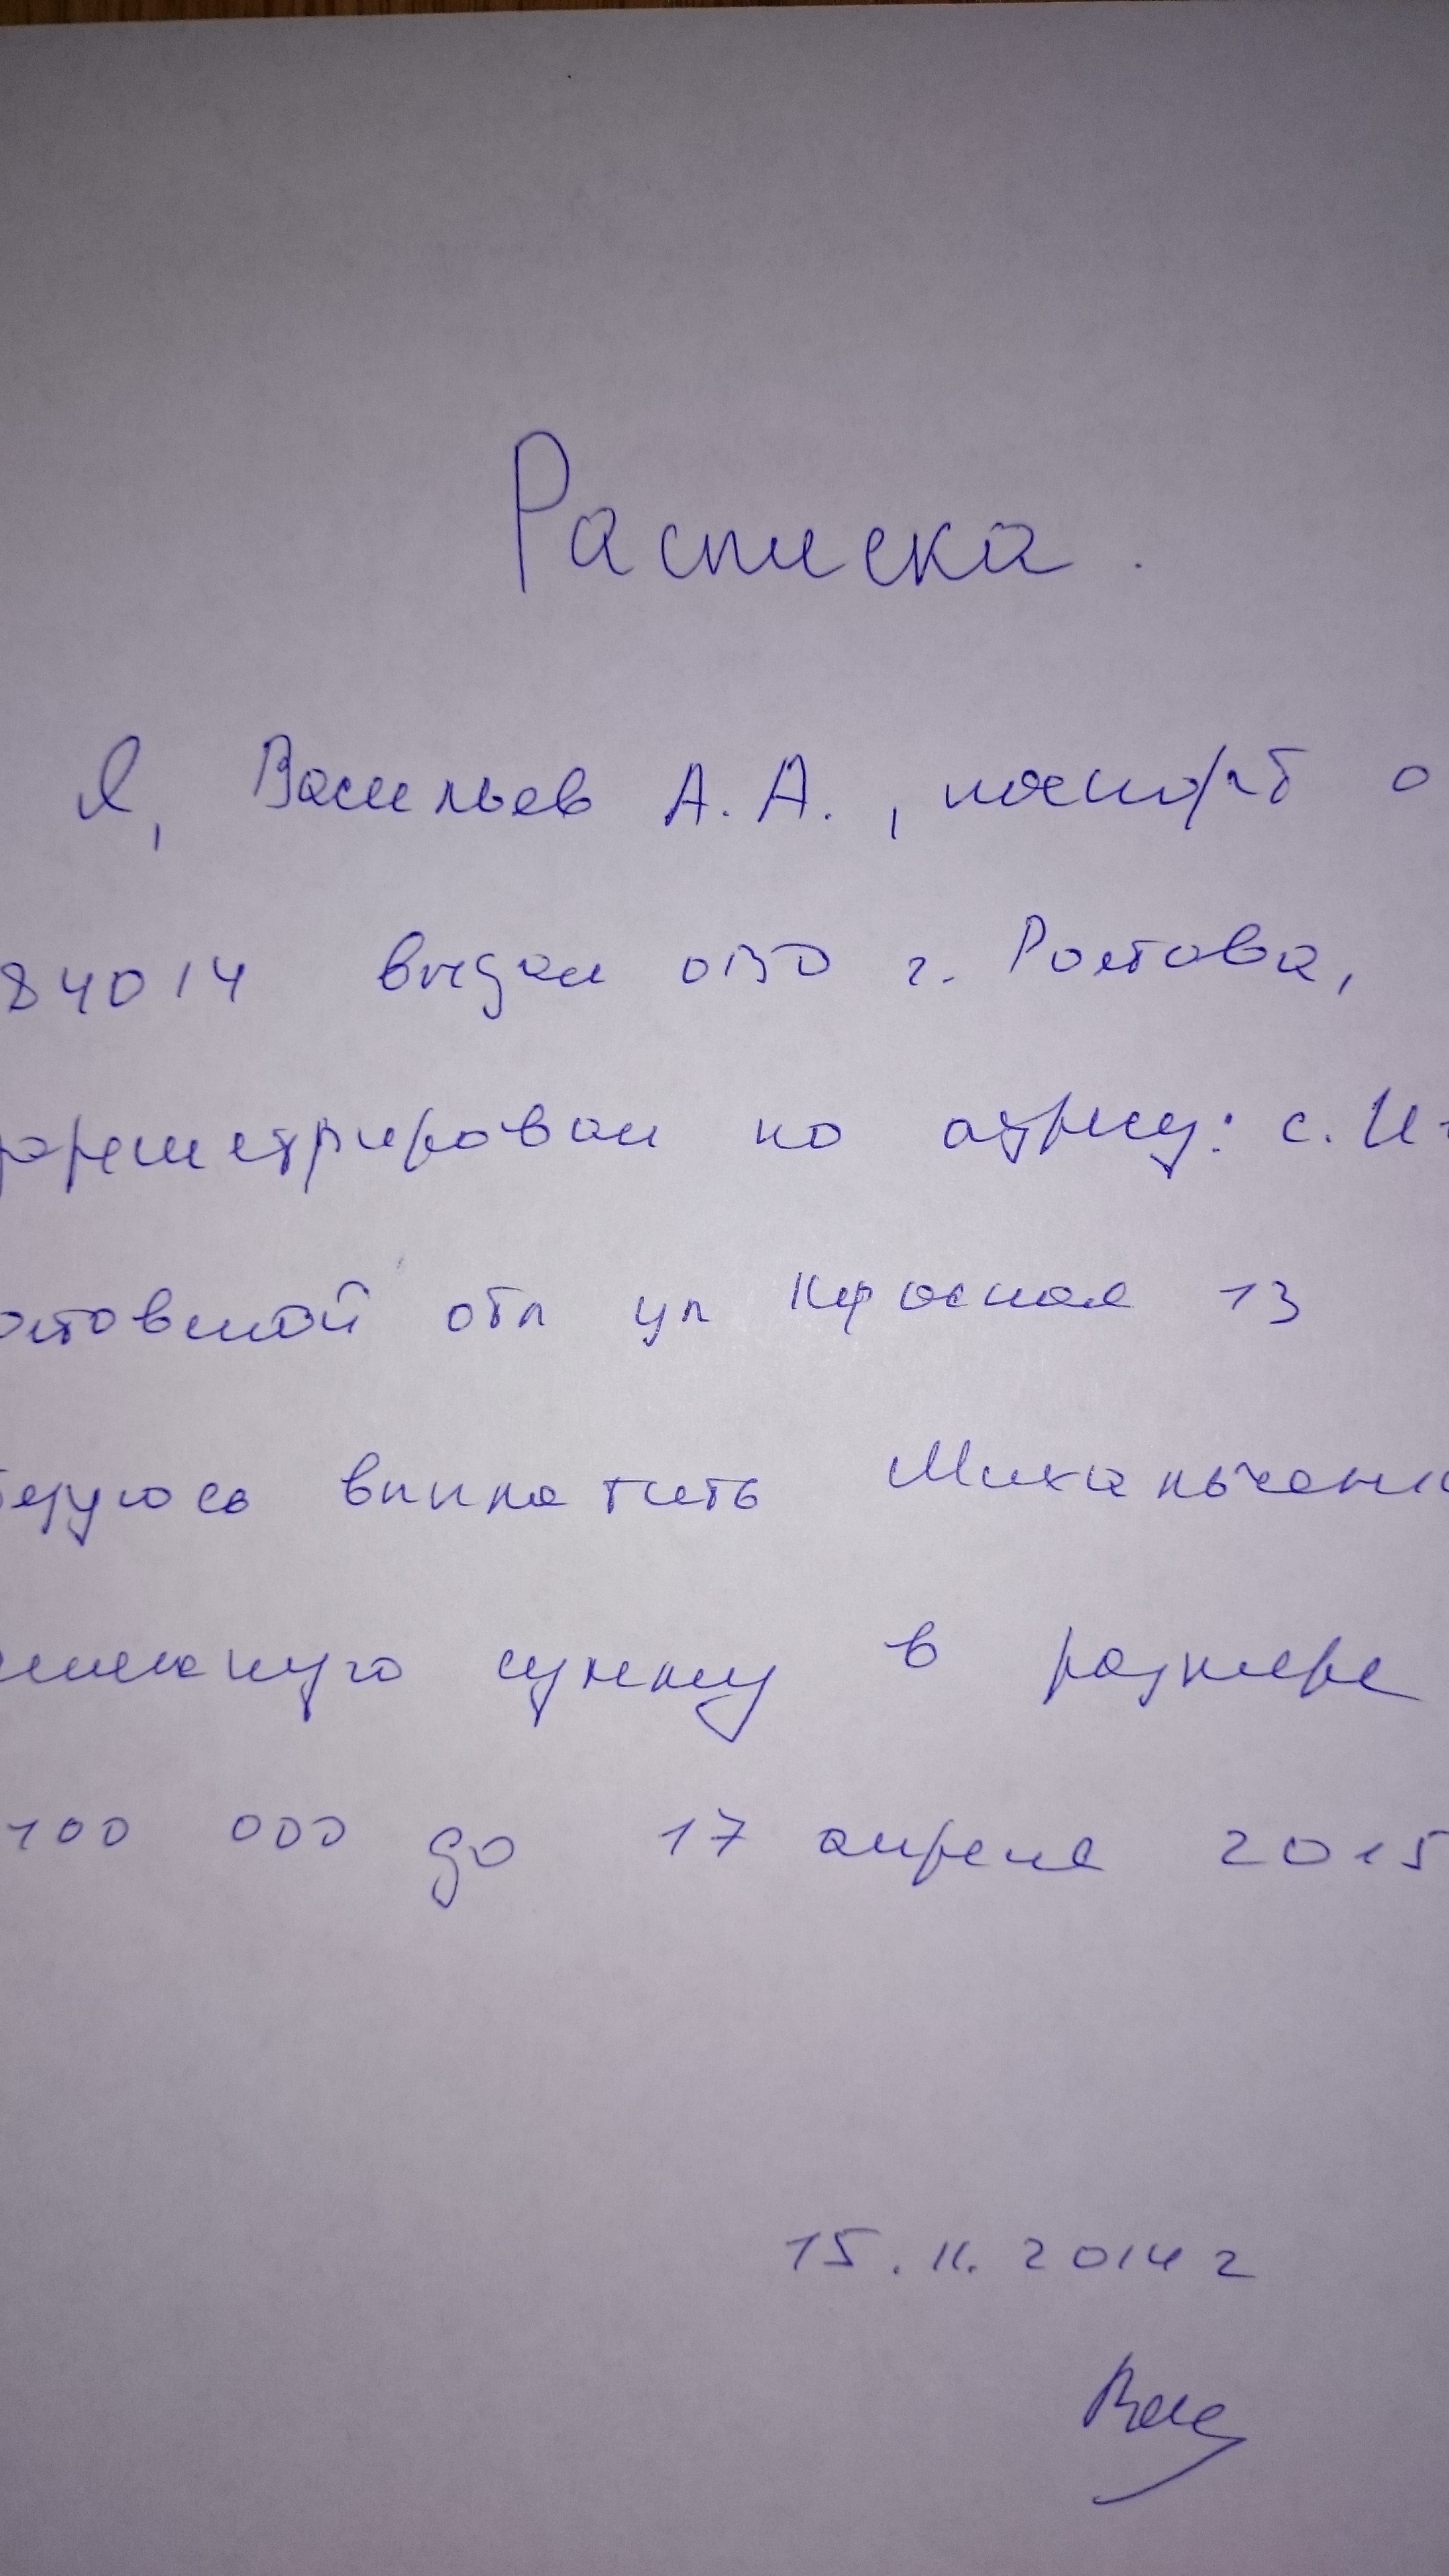 Расписка.
Я, Васильев А.А., паспорт 0
84014 выдан ОВО г. Ростова,
по адресу: с.
остовской обл ул Красная 13
выплатить Михальченко
сумму в размере
100 000 до 17 апреля 2015
15.11.2014 г
Вас